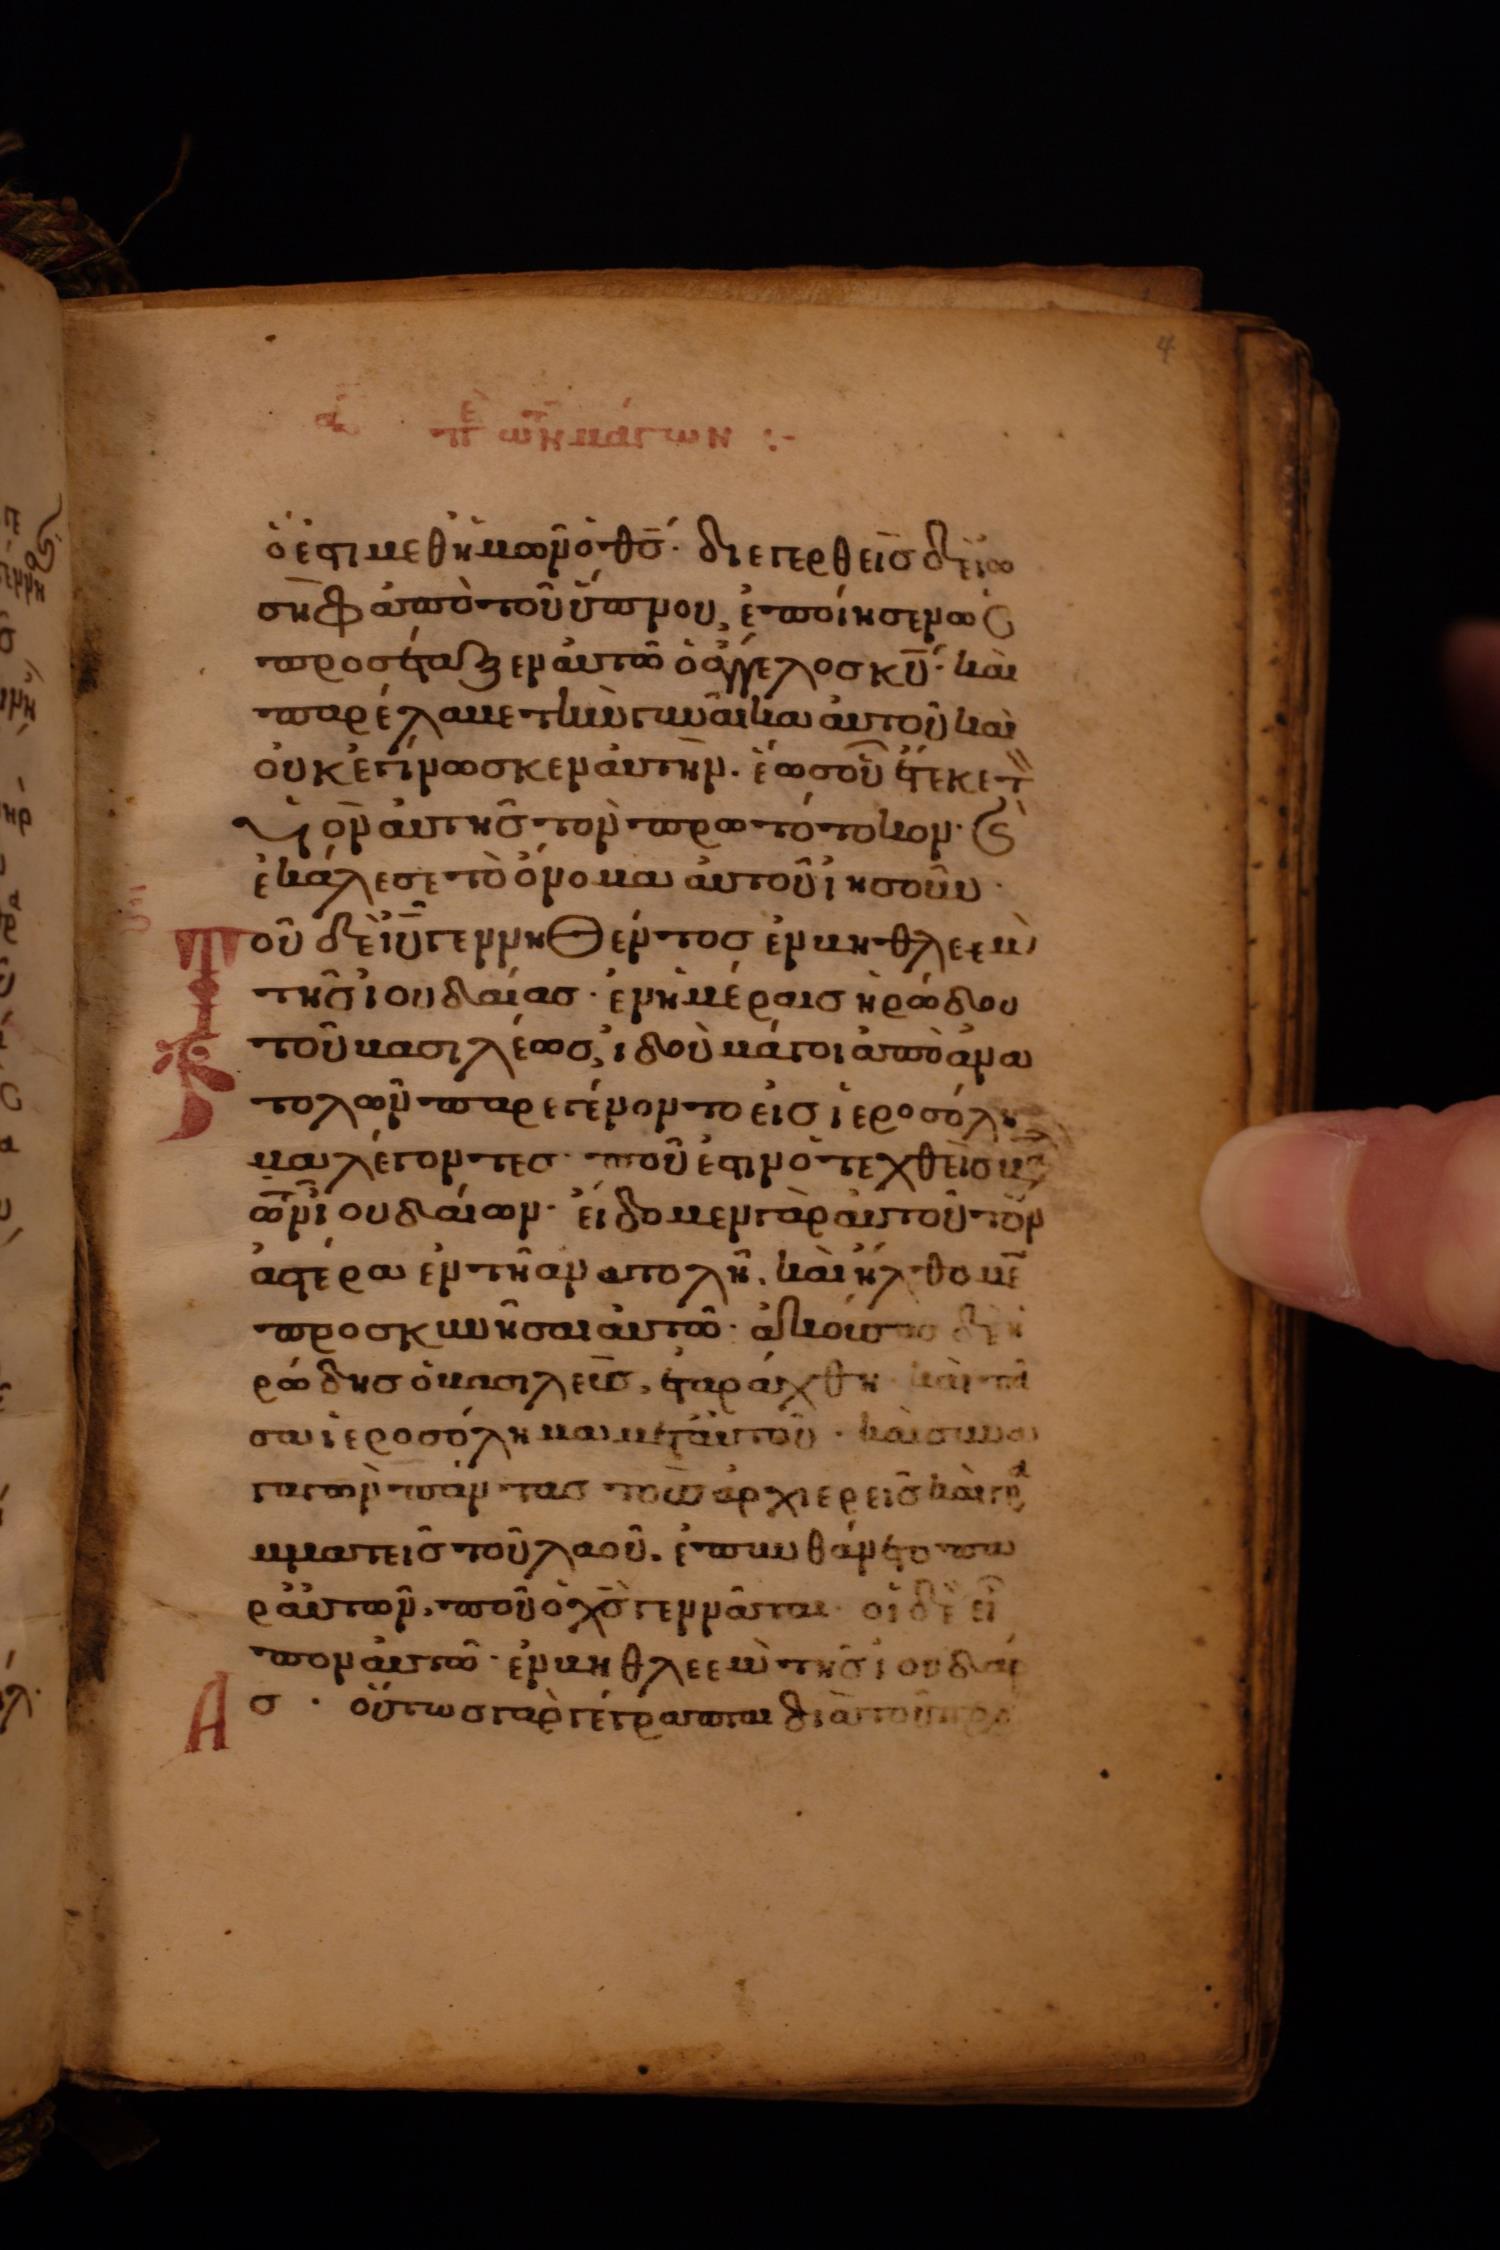 4
α π̅ε̅ τῶν μάγων :-
ὅ ἐστι μεθ ἡμῶν ὁ θ̅ς̅· διεγερθεὶς δὲ ἰω
σὴφ ἀπὸ τοῦ ὕπνου, ἐποίησεν ὡς
προσέταξεν αὐτῶ ὁ ἄγγελος κ̅υ̅· καὶ
παρέλαβε τὴν γυναῖκα αὐτοῦ καὶ
οὐκ ἐγίνωσκεν αὐτὴν. ἕως οὗ ἔτεκε τ
υἱὸν αὐτῆς τὸν πρωτότοκον· καὶ
ἐκάλεσε τὸ ὄνομα αὐτοῦ ἰησοῦν·
Τοῦ δὲ ἰ̅υ̅ γεννηθέντος ἐν βηθλεὲμ
τῆς ἰουδαίας· ἐν ἡμέραις ἡρώδου
τοῦ βασιλέως, ἰδοὺ μάγοι ἀπὸ ἀνα
τολῶν παρεγένοντο εἰς ἱεροσόλη
μα λέγοντες· ποῦ ἐστιν ὁ τεχθεὶς βα
τῶν ἰουδαίων· εἴδομεν γὰρ αὐτοῦ τὸν
ἀστέρα ἐν τῆ ἀνατολῆ. καὶ ἤλθομε
προσκυνῆσαι αὐτῶ· ἀκούσας δὲ ἡ
ρώδης ὁ βασιλεὺς, ἐταράχθη καὶ πᾶ
σα ἱεροσόλημα μετ' αὐτοῦ· καὶ συνα
γαγὼν πάντας τοὺς ἀρχιερεῖς καὶ γρα
μματεῖς τοῦ λαοῦ. ἐπυνθάνετο πα
ρ' αὐτῶν, ποῦ ὁ χ̅ς̅ γεννᾶται· οἱ δὲ εἶ
πον αὐτῶ· ἐν βηθλεὲμ τῆς ἰουδαί
ας· οὕτως γὰρ γέγραπται διὰ τοῦ προ